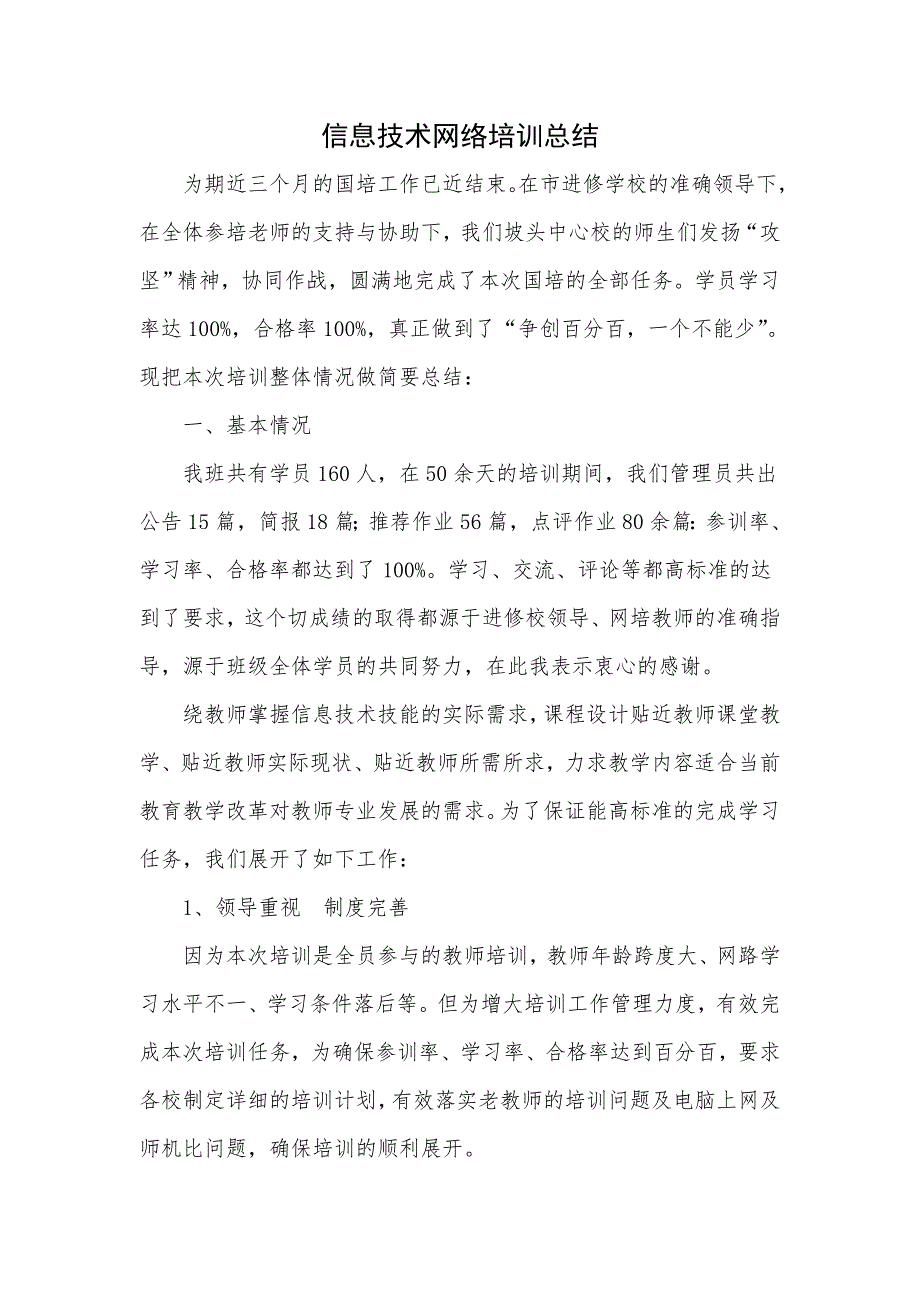 信息技术网络培训总结
为期近三个月的国培工作已近结束。在市进修学校的准确领导下，
在全体参培老师的支持与协助下，我们坡头中心校的师生们发扬“攻
坚”精神，协同作战，圆满地完成了本次国培的全部任务。学员学习
率达 100%，合格率 100%，真正做到了“争创百分百，一个不能少”。
现把本次培训整体情况做简要总结：
一、基本情况
我班共有学员 160 人，在 50 余天的培训期间，我们管理员共出
公告 15 篇，简报 18 篇；推荐作业 56 篇，点评作业 80 余篇：参训率、
学习率、合格率都达到了 100%。学习、交流、评论等都高标准的达
到了要求，这个切成绩的取得都源于进修校领导、网培教师的准确指
导，源于班级全体学员的共同努力，在此我表示衷心的感谢。
绕教师掌握信息技术技能的实际需求，课程设计贴近教师课堂教
学、贴近教师实际现状、贴近教师所需所求，力求教学内容适合当前
教育教学改革对教师专业发展的需求。为了保证能高标准的完成学习
任务，我们展开了如下工作：
1、领导重视　制度完善
因为本次培训是全员参与的教师培训，教师年龄跨度大、网路学
习水平不一、学习条件落后等。但为增大培训工作管理力度，有效完
成本次培训任务，为确保参训率、学习率、合格率达到百分百，要求
各校制定详细的培训计划，有效落实老教师的培训问题及电脑上网及
师机比问题，确保培训的顺利展开。